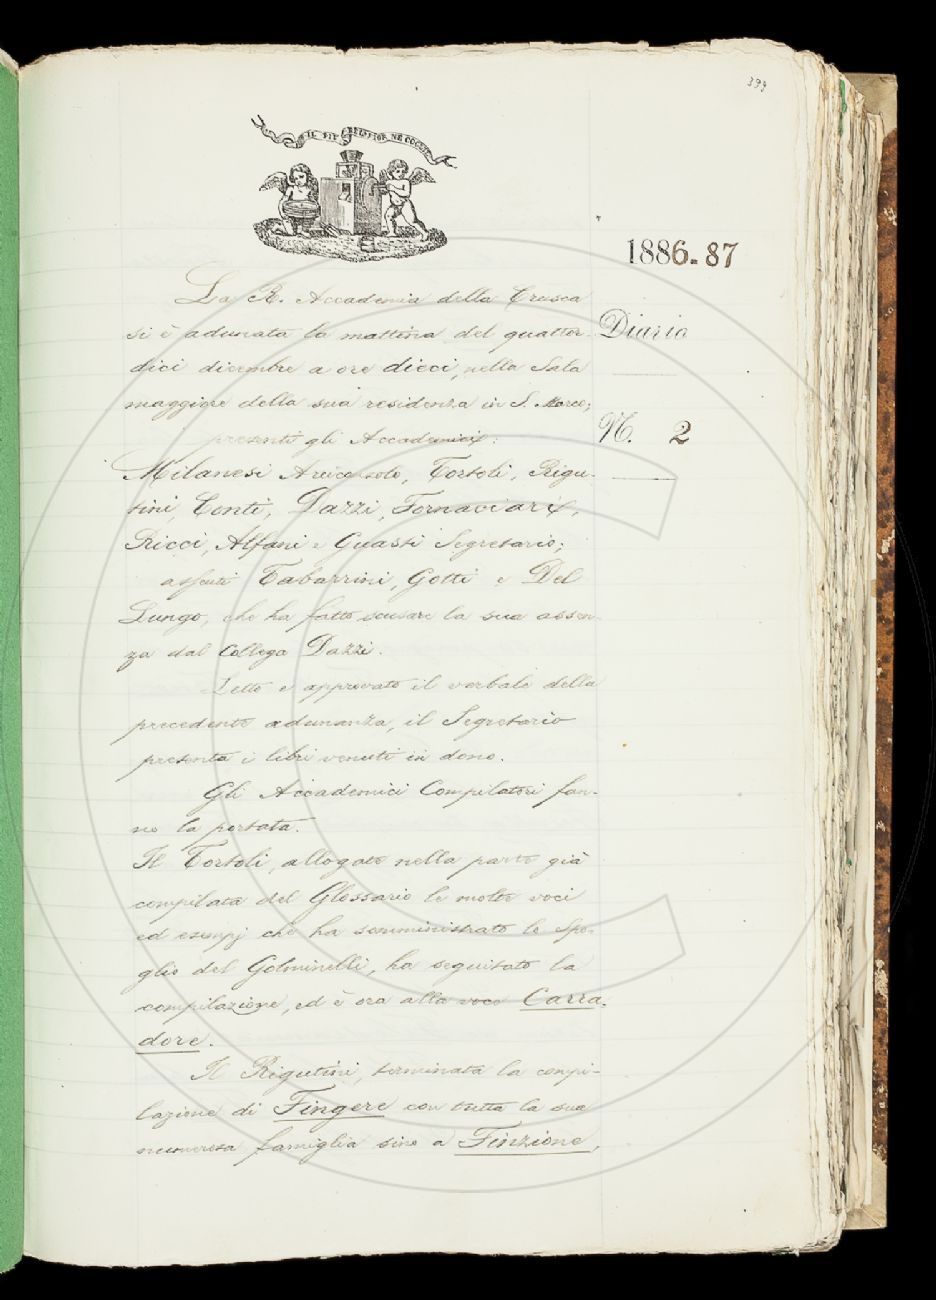 399
IL PIÙ BEL FIOR NE COGLIE
1886-87
La R. Accademia della Crusca
si è adunata la mattina del quattor-
Diario
dici dicembre a ore dieci, nella Sala
maggiore della sua residenza in S. Marco;
presenti gli Accademici:
N. 2
Milanesi Arciconsolo, Tortoli, Rigu-
tini, Conti, Dazzi, Fornaciari,
Ricci, Alfani e Guasti Segretario;
assenti Tabarrini, Gotti e Del
Lungo, che ha fatto scusare la sua assen-
za dal Collega Dazzi.
Letto e approvato il verbale della
precedente adunanza, il Segretario
presenta i libri venuti in dono.
Gli Accademici Compilatori fan-
no la portata.
Il Tortoli, allogate nella parte già
compilata del Glossario le molte voci
ed esempj che ha somministrato lo spo-
glio del Golminelli, ha seguitato la
compilazione, ed è ora alla voce Carra-
dore.
Il Rigutini, terminata la compi-
lazione di Fingere con tutta la sua
numerosa famiglia sino a Finzione,